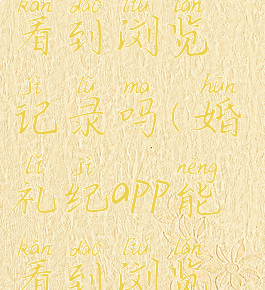 kàn dào liú lǎn
看到浏览
jì lù ma hūn
记录吗(婚
lǐ jì néng
礼纪app能
kàn dào liú lǎn
看到浏览